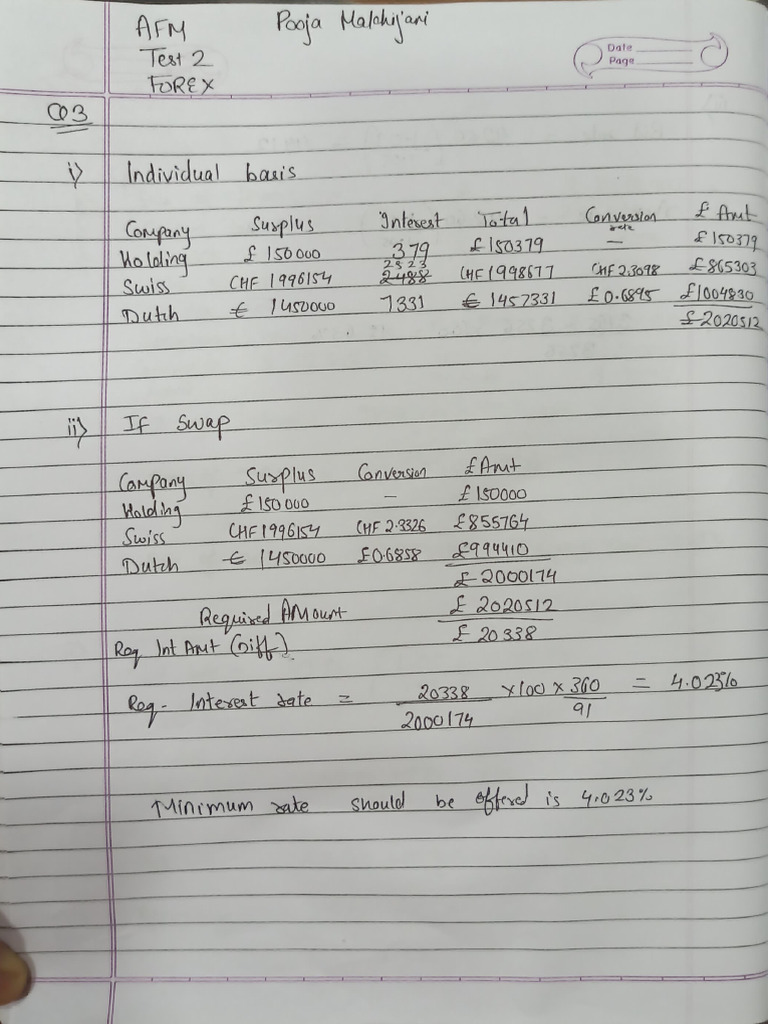 AFM Pooja Malchijani
Test 2
FOREX
Date
Page
Q3
i) Individual basis
Company Surplus Interest Total Conversion rate £ Amt
Holding £ 150000 379 £150379 — £150379
Swiss CHF 1996154 2523 2488 CHF 1998677 CHF 2.3098 £865303
Dutch € 1450000 7331 € 1457331 £0.6895 £1004830
£2020512
ii) If Swap
Company Surplus Conversion £Amt
Holding £150000 — £150000
Swiss CHF 1996154 CHF 2.3326 £855764
Dutch € 1450000 £0.6858 £994410
£2000174
Required Amount £ 2020512
Req Int Amt (Diff) £ 20338
Req. Interest rate = 20338 / 2000174 × 100 × 360 / 91 = 4.023%
Minimum rate should be offered is 4.023%